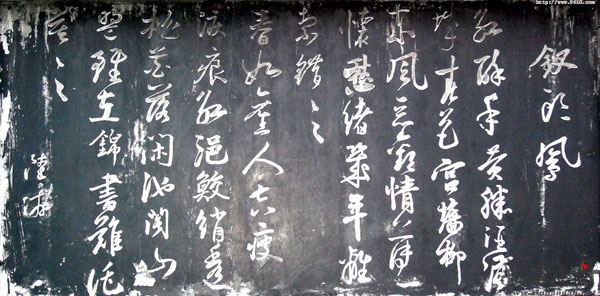 釵頭鳳
紅酥手黃縢酒滿
城春色宮牆柳
東風惡歡情薄一
懷愁緒幾年離
索錯〻〻
春如舊人空瘦
淚痕紅浥鮫綃透
桃花落閑池閣山
盟雖在錦書難託
莫〻〻
陸游
http://www.9610.com